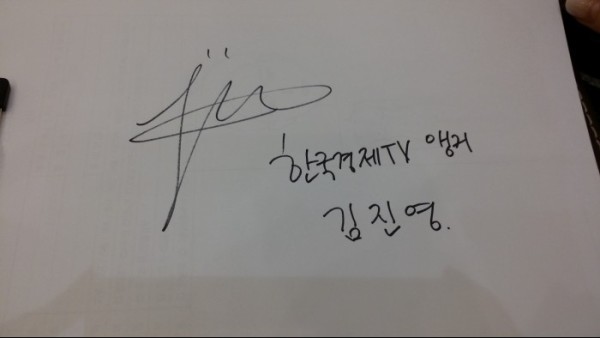 한국경제TV 앵커
김진영.